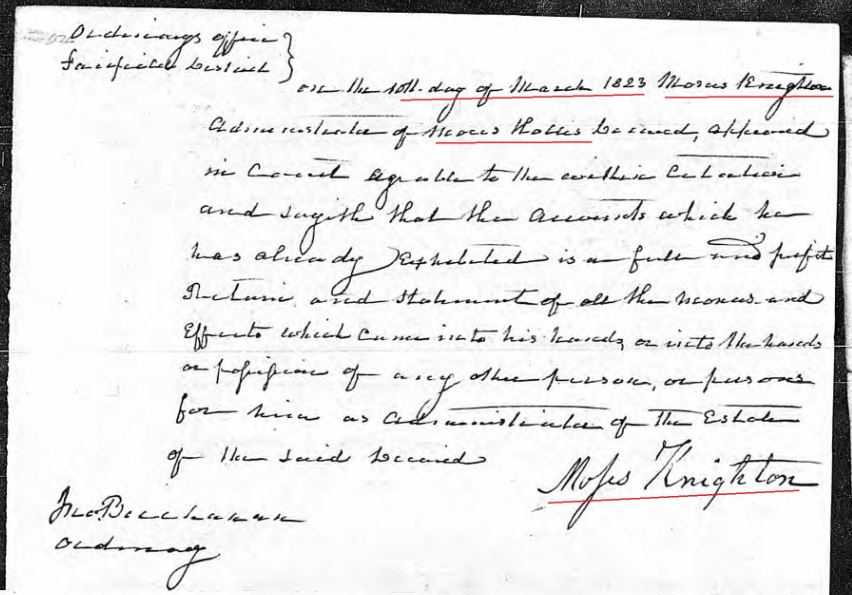 Ordinarys office
Fairfield District
on the 10th day of March 1823 Moses Knighton
Administrator of Moses Hollis Deceased, appeared
in Court agreable to the within Citation
and sayith that the Accounts which he
has already Exhibited is a full and perfect
Return and Statement of all the monies and
Effects which Came into his hands, or into the hands
or possession of any other person, or persons
for him as Administrator of the Estate
of the said Deceased
Moses Knighton
Jno Buchanan
Ordinary